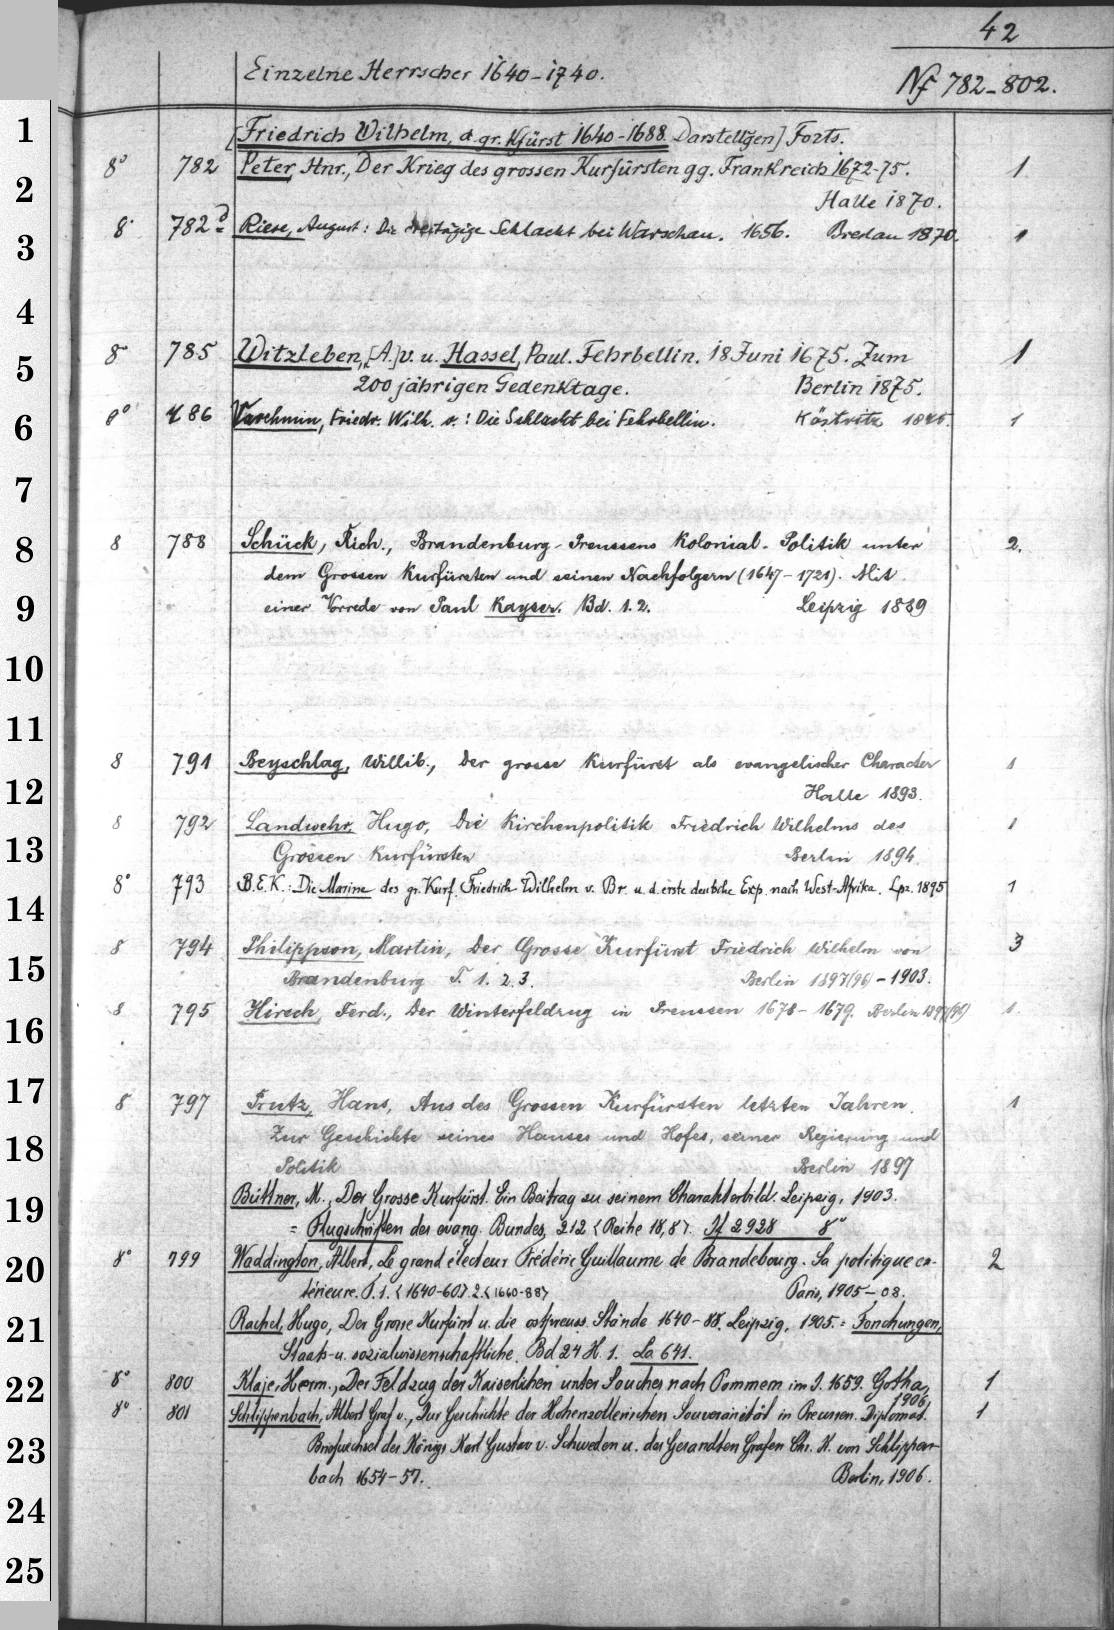 42
Einzelne Herrscher 1640-1740.
Nf 782-802.
[Friedrich Wilhelm, d. gr. Kfürst 1640-1688. Darstellgen] Forts.
8° 782 Peter, Hnr., Der Krieg des grossen Kurfürsten gg. Frankreich 1672-75. 1
Halle 1870.
8° 782 d Riese, August: Die dreitägige Schlacht bei Warschau. 1656. Breslau 1870. 1
8° 785 Witzleben, [A.] v. u. Hassel, Paul. Fehrbellin. 18 Juni 1675. Zum 1
200jährigen Gedenktage. Berlin 1875.
8° 786 Varchmin, Friedr. Wilh. v.: Die Schlacht bei Fehrbellin. Köstritz 1
8 788 Schück, Rich., Brandenburg-Preussens Kolonial-Politik unter 2.
dem Grossen Kurfürsten und seinen Nachfolgern (1647-1721). Mit
einer Vorrede von Paul Kayser. Bd. 1.2. Leipzig 1889
8 791 Beyschlag, Willib., Der grosse Kurfürst als evangelischer Character 1
Halle 1893.
8 792 Landwehr, Hugo, Die Kirchenpolitik Friedrich Wilhelms des 1
Grossen Kurfürsten Berlin 1894.
8° 793 B.E.K.: Die Marine des gr. Kurf. Friedrich Wilhelm v. Br. u. d. erste deutsche Exp. nach West-Afrika. Lpz. 1895 1
8 794 Philippson, Martin, Der Grosse Kurfürst Friedrich Wilhelm von 3
Brandenburg T. 1.2.3. Berlin 1897(96)-1903.
8 795 Hirsch, Ferd., Der Winterfeldzug in Preussen 1678-1679. Berlin 1897(96) 1.
8 797 Prutz, Hans, Aus des Grossen Kurfürsten letzten Jahren. 1
Zur Geschichte seines Hauses und Hofes, seiner Regierung und
Politik Berlin 1897
Büttner, M., Der Grosse Kurfürst. Ein Beitrag zu seinem Charakterbild. Leipzig, 1903.
= Flugschriften des evang. Bundes, 212 < Reihe 18, 8 >. Af 2928 8°
8° 799 Waddington, Albert, Le grand électeur Frédéric Guillaume de Brandebourg. Sa politique ex- 2
térieure. T. 1. <1640-60>. 2. <1660-88> Paris, 1905-08.
Rachel, Hugo, Der Grosse Kurfürst u. die ostpreuss. Stände 1640-88. Leipzig, 1905. = Forschungen,
Staats- u. sozialwissenschaftliche. Bd 24 H. 1. La 641.
8° 800 Klaje, Herm., Der Feldzug der Kaiserlichen unter Souches nach Pommern im J. 1659. Gotha, 1
1906.
8° 801 Schlippenbach, Albert Graf v., Zur Geschichte der Hohenzollerischen Souveränität in Preussen. Diplomat. 1
Briefwechsel des Königs Karl Gustav v. Schweden u. des Gesandten Grafen Chr. K. von Schlippen-
bach 1654-57. Berlin, 1906.
1
2
3
4
5
6
7
8
9
10
11
12
13
14
15
16
17
18
19
20
21
22
23
24
25